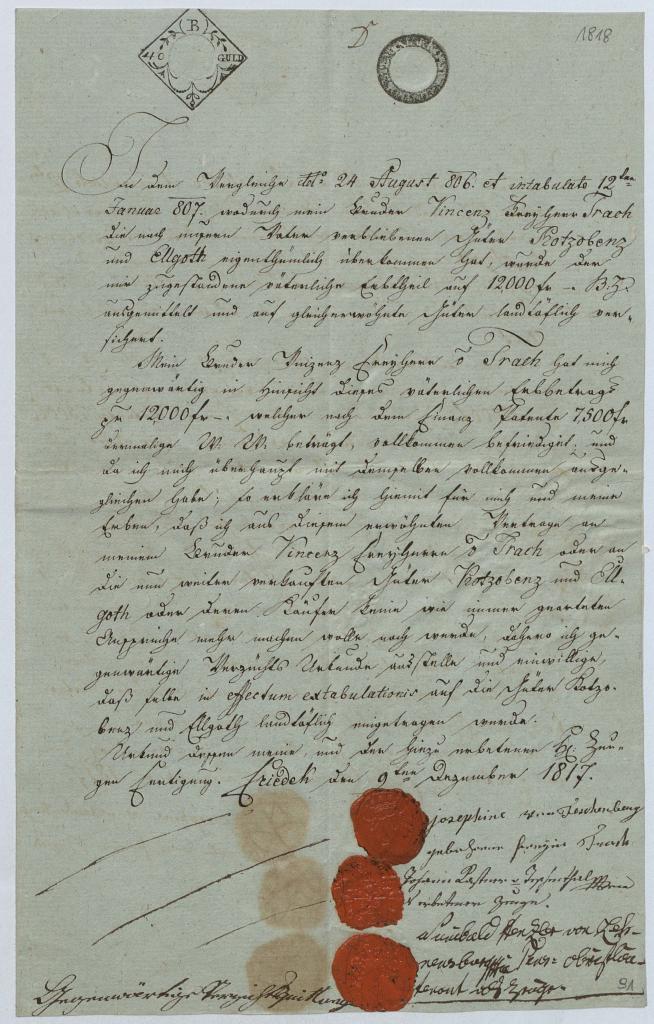 B
40 GULD
1818
In dem Vergleiche ddo 24 August 806. et intabulato 12ten
Januar 807. wodurch mein Bruder Vincenz Freyherr Trach
die nach unsern Vater verbliebenen Güter Kotzobenz
und Ellgoth eigenthümlich überkommen hat, wurde der
mir zugestandene väterliche Erbtheil auf 12,000 fr - B. Z.
ausgemittelt und auf gleicherwöhnte Güter landtäflich ver-
sichert.
Mein Bruder Vinzenz Freyherr v Trach hat mich
gegenwärtig in Hinsicht dieses väterlichen Erbbetrags
pr 12,000 fr - welcher nach dem Finanz Patente 7,500 fr
dermalige W. W. beträgt, vollkommen befriedigt, und
da ich mich überhaupt mit demselben vollkommen ausge-
glichen habe; so erkläre ich hiemit für mich und meine
Erben, daß ich aus diesem erwöhnten Vertrage an
meinem Bruder Vincenz Freyherrn v Trach oder an
die nun weiter verkauften Güter Kotzobenz und Ell-
goth oder deren Käufer keine wie immer geartete
Ansprüche mehr machen wolle noch werde, dahero ich ge-
genwärtige Verzichts Urkunde ausstelle und einwillige,
daß selbe in effectum extabulationis auf die Güter Kotzo-
benz und Ellgoth landtäflich eingetragen werde.
Urkund dessen meine, und der hiezu erbetenen H: Zeu-
gen Fertigung. Friedek den 9ten Dezember 1817.
Josephine von Teschenberg
gebohrene Freyin Trach
Johann
erbetener Zeuge.
von
als Zeuge
Gegenwärtige Verzichtsquittung
91